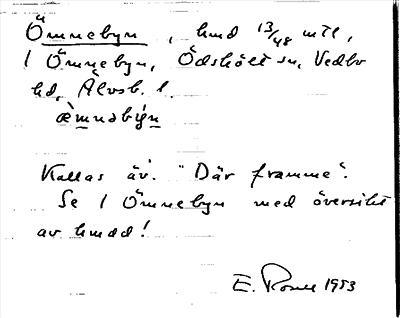 Ömnebyn, hmd 13/48 mtl,
1 Ömnebyn, Ödskölt sn, Vedbo
hd, Älvsb. l.
Kallas äv. "Där framme".
Se 1 Ömnebyn med översikt
av hmdd!
E. 1953